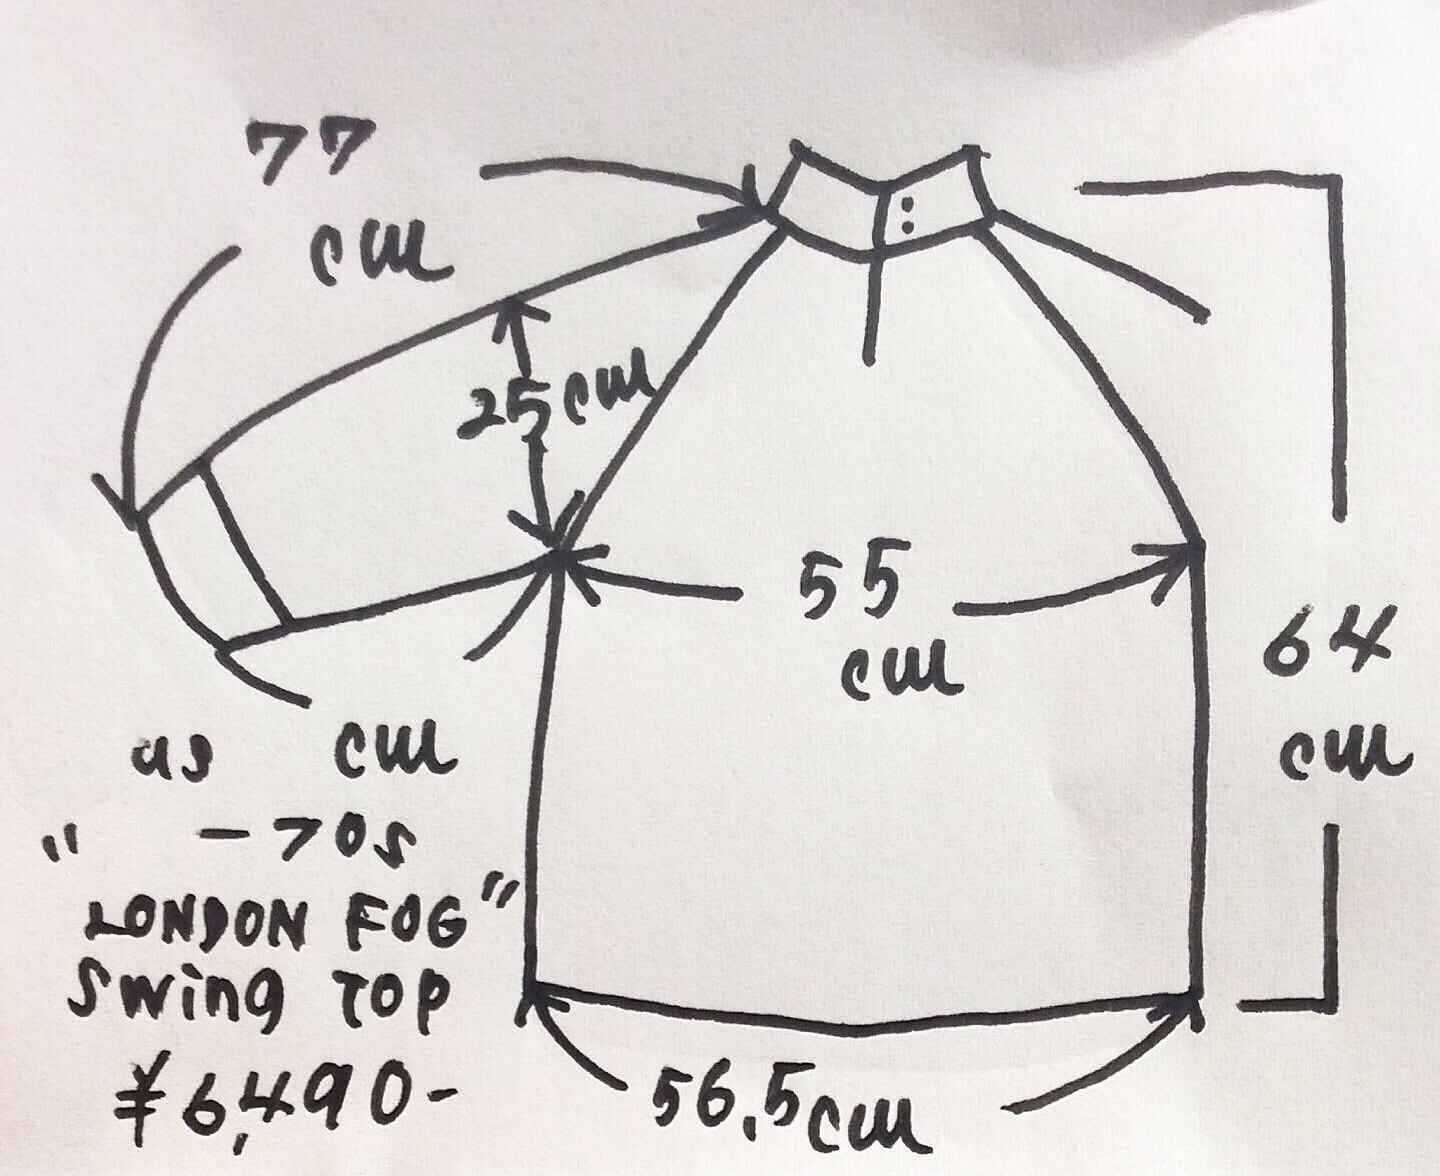 77
cm
25cm
55
cm
64
cm
us
cm
" -70s
LONDON FOG"
Swing TOP
¥6,490-
56.5cm